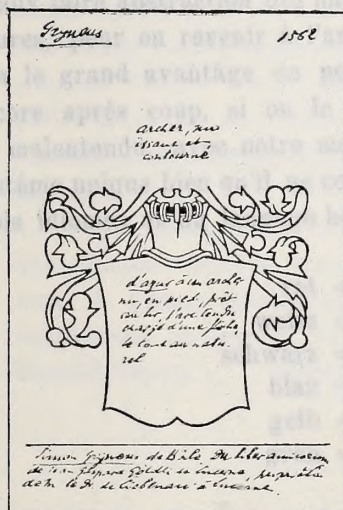 Grynæus 1562
archer, nu
issant et
contourné
d'azur à un archer
nu, en pied, prêt
au tir, l'arc tendu
chargé d'une flèche,
le tout au natu-
rel
Simon Grynæus de Bâle Du liber amicorum
de Jean Göldli de Lucerne, propriété
de M. le Dr. de Liebenau à Lucerne.
schwarz =
blau =
gelb =